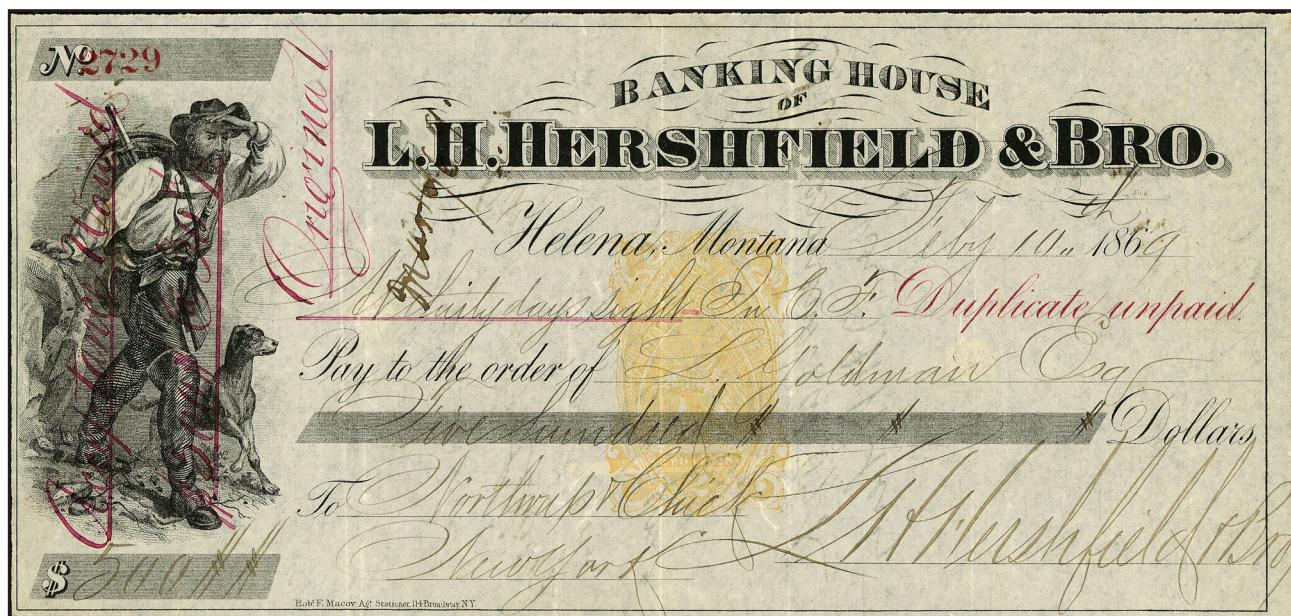 No 2729
Original
BANKING HOUSE
OF
L.H. HERSHFIELD & BRO.
Helena, Montana Feby 10th 1869
At thirty days sight In C. F. Duplicate unpaid.
Pay to the order of L. Goldman Esqr
Five hundred Dollars
To Northrup & Chick L H Hershfield & Bro
New York
$ 500
Robt F. Macoy Agt Stationer, 114 Broadway N.Y.